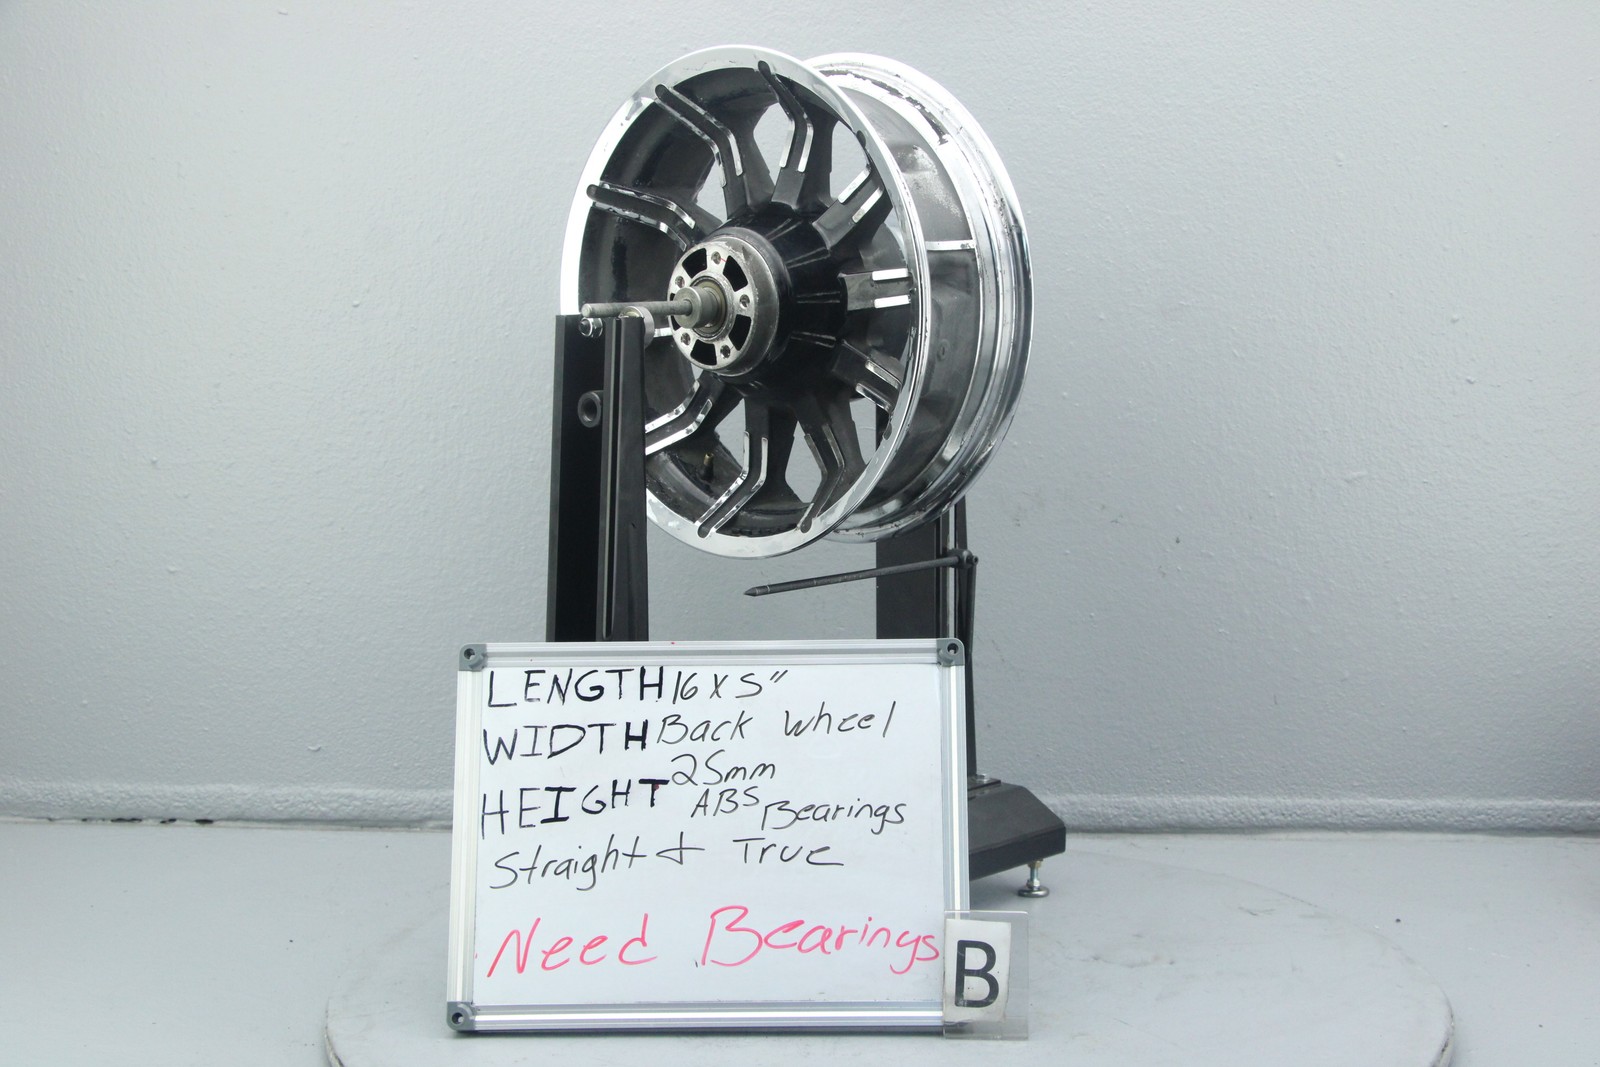 LENGTH 16 X 5"
WIDTH Back Wheel
HEIGHT 25mm
ABS Bearings
Straight & True
Need Bearings
B